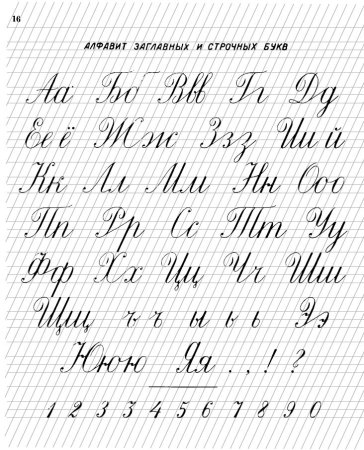 16
АЛФАВИТ ЗАГЛАВНЫХ И СТРОЧНЫХ БУКВ
Аа Бб Ввв Гг Дд
Ее ё Жж Ззз Ии й
Кк Лл Мм Нн Ооо
Пп Рр Сс Тт Уу
Фф Хх Цц Чч Шш
Щщ ъ ъ ы ь ь Ээ
Ююю Яя . , ! ?
1 2 3 4 5 6 7 8 9 0